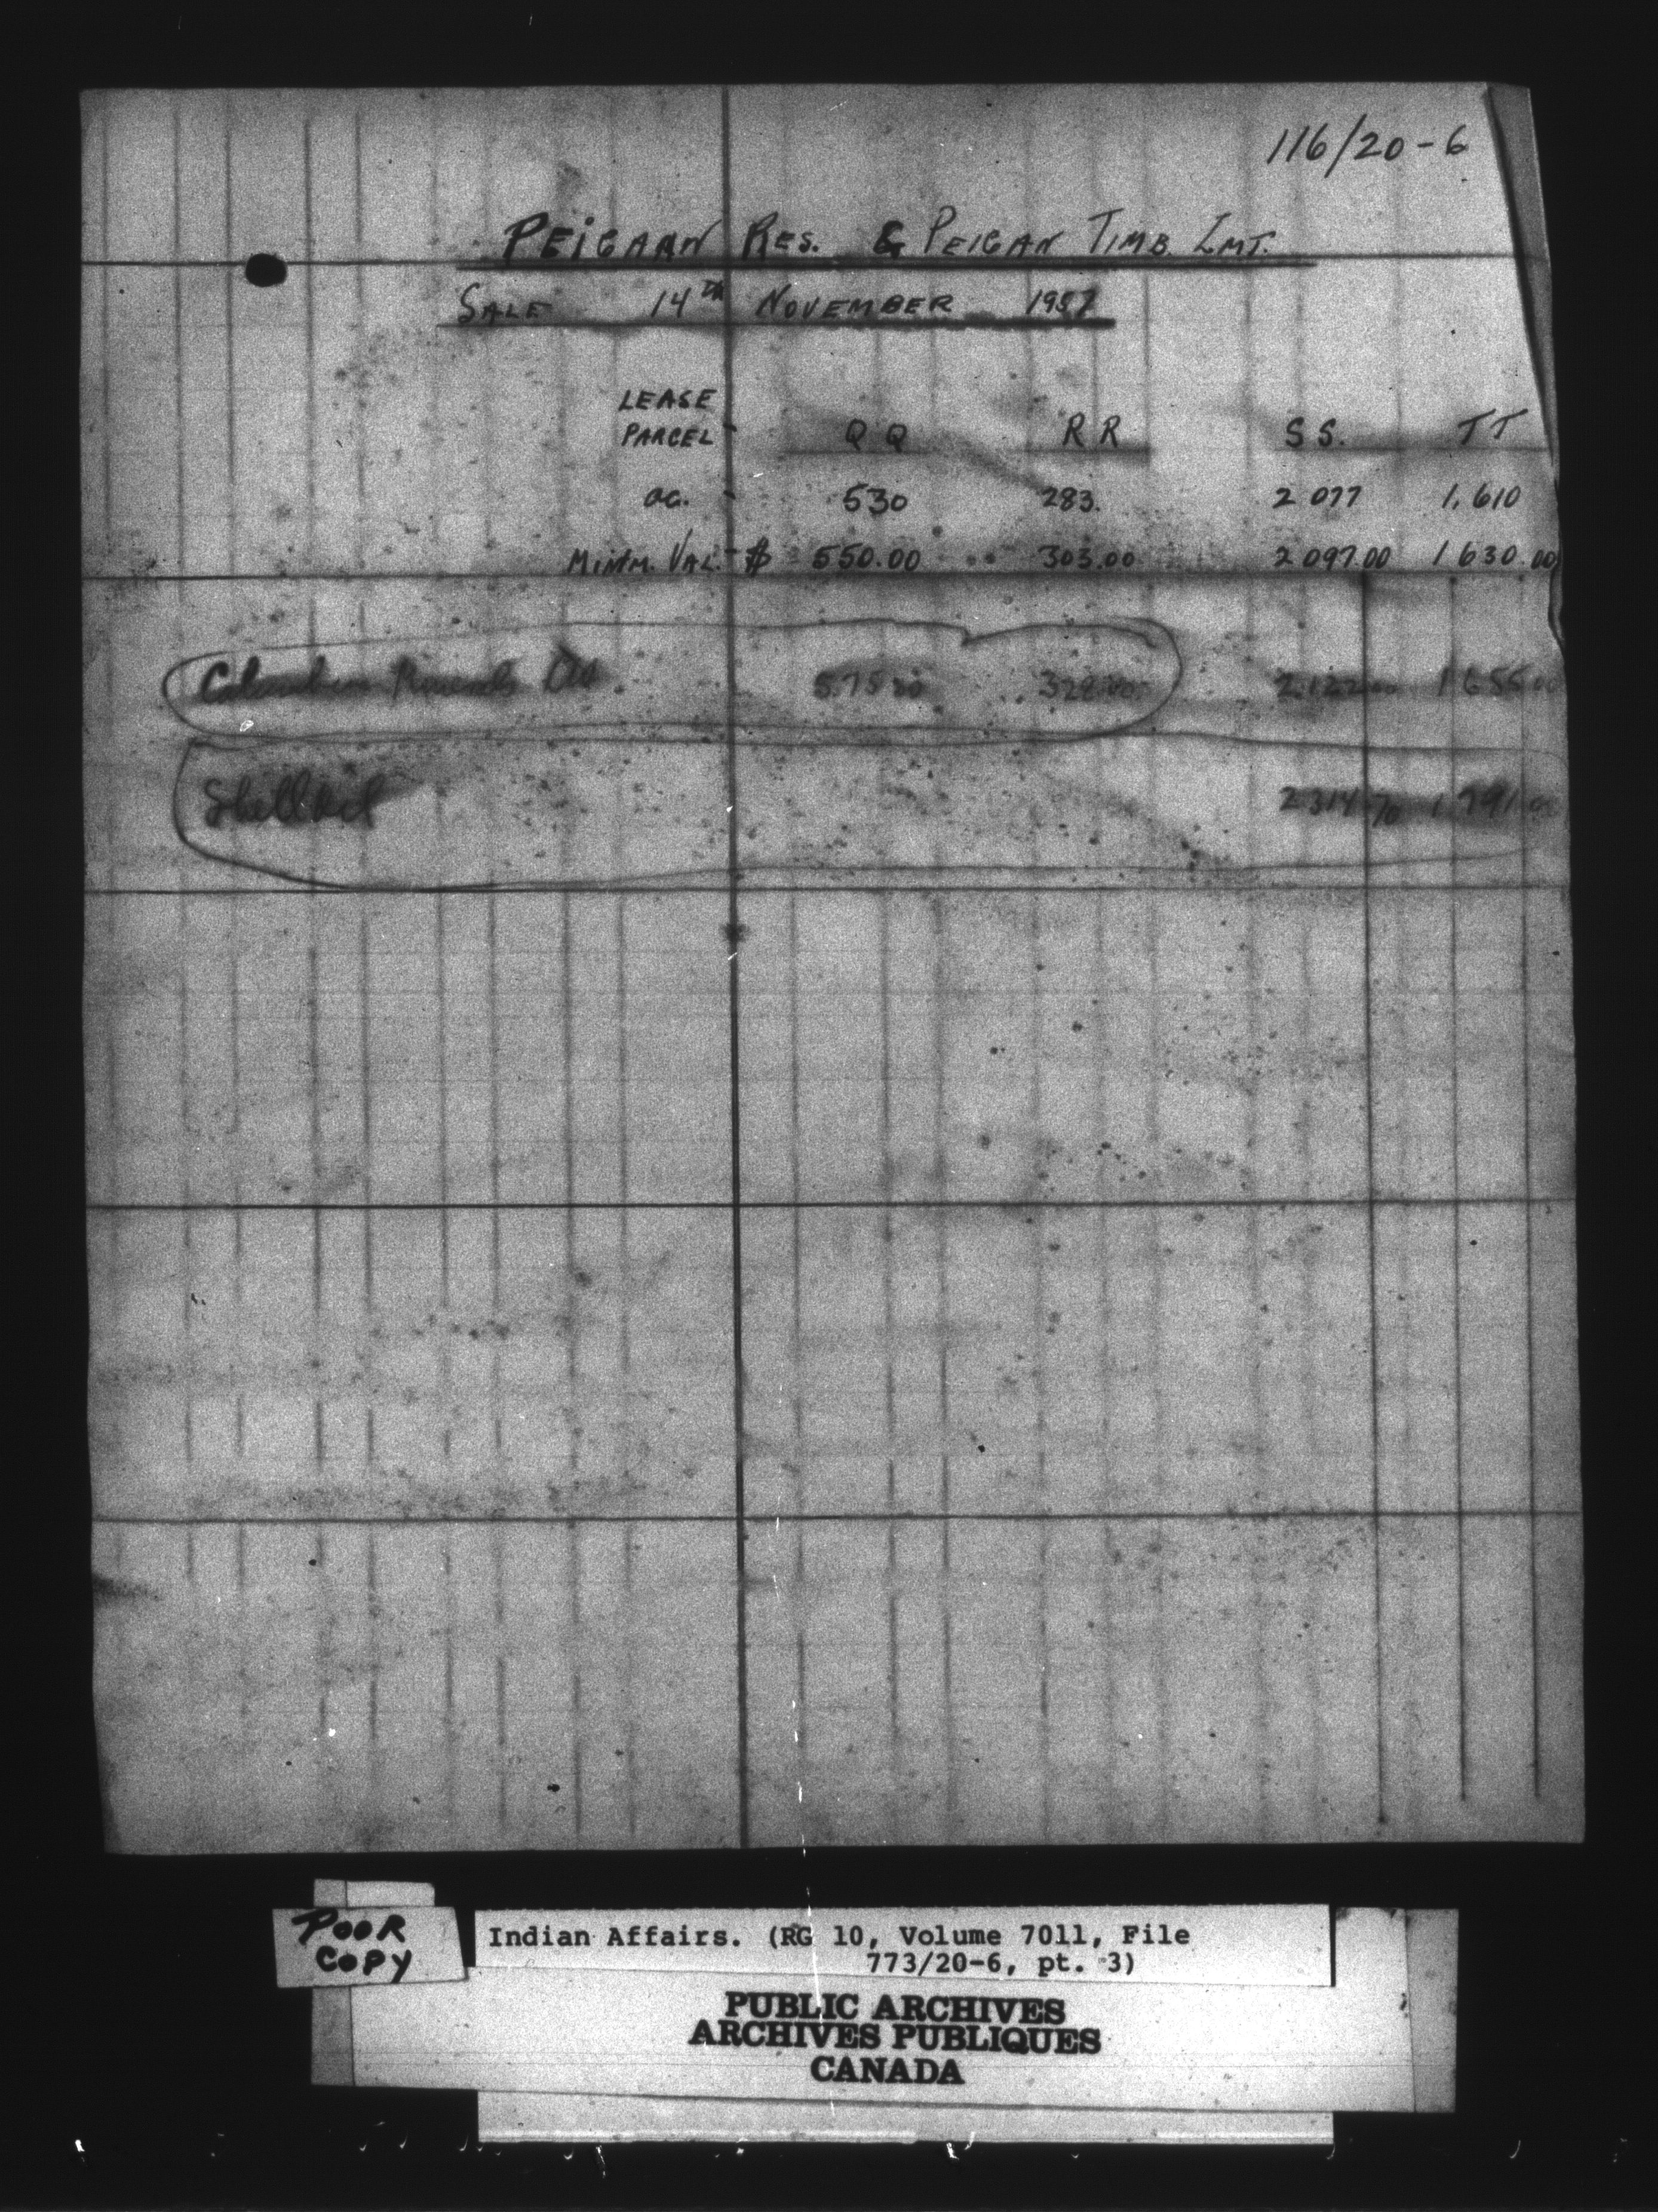 116/20-6
PEIGAAN RES. & PEIGAN TIMB. LMT.
SALE 14TH NOVEMBER 1957
LEASE
PARCEL - QQ RR SS. TT
ac. - 530 283. 2 077 1,610
MINM. VAL. - $ 550.00 303.00 2 097.00 1 630.00
Columbian Minerals Ltd. 575 00 328.00 2,122 00 1 655 00
Shell Oil 2 314 70 1 791 00
POOR
COPY
Indian Affairs. (RG 10, Volume 7011, File
773/20-6, pt. 3)
PUBLIC ARCHIVES
ARCHIVES PUBLIQUES
CANADA